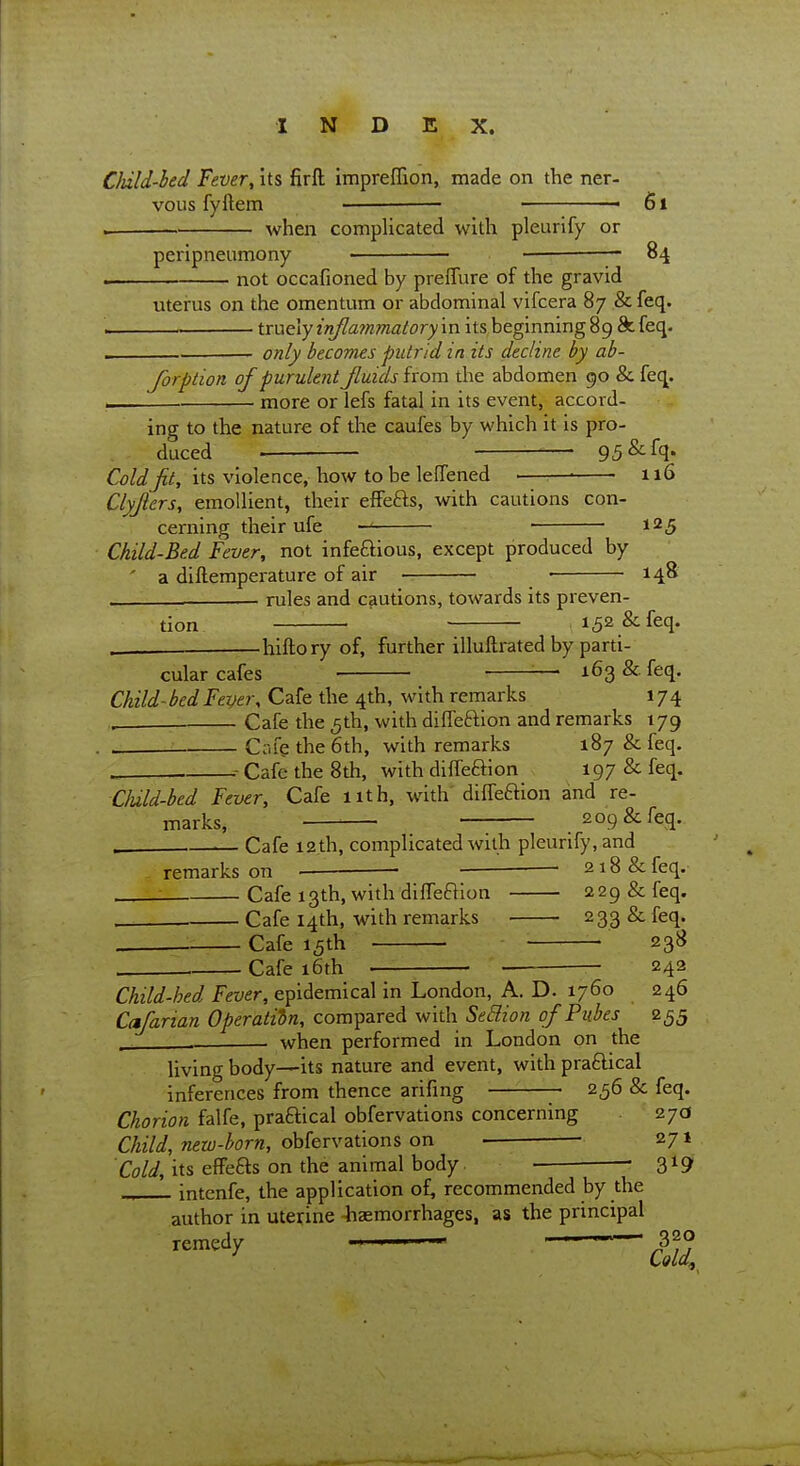 INDEX.
Child-bed Fever, its firſt impreſſion, made on the ner-
vous ſyſtem ——— ——— 61
——— when complicated with pleuriſy or
peripneumony ——— ——— 84
——— not occaſioned by preſſure of the gravid
uterus on the omentum or abdominal viſcera 87 & ſeq.
——— truely inflammatory in its beginning 89 & ſeq.
——— only becomes putrid in its decline by ab-
ſorption of purulent fluids from the abdomen 90 & ſeq.
——— more or leſs fatal in its event, accord-
ing to the nature of the cauſes by which it is pro-
duced ——— ——— 95 & ſq.
Cold fit, its violence, how to be leſſened ——— 116
Clyſters, emollient, their effects, with cautions con-
cerning their uſe ——— ——— 125
Child-Bed Fever, not infectious, except produced by
a diſtemperature of air ——— ——— 148
——— rules and cautions, towards its preven-
tion ——— ——— 152 & ſeq.
——— hiſtory of, further illuſtrated by parti-
cular caſes ——— ——— 163 & ſeq.
Child-bed Fever, Caſe the 4th, with remarks 174
——— Caſe the 5th, with diſſection and remarks 179
——— Caſe the 6th, with remarks 187 & ſeq.
——— Caſe the 8th, with diſſection 197 & ſeq.
Child-bed Fever, Caſe 11th, with diſſection and re-
marks, ——— ——— 209 & ſeq.
——— Caſe 12th, complicated with pleuriſy, and
remarks on ——— ——— 218 & ſeq.
——— Caſe 13th, with diſſection ——— 229 & ſeq.
——— Caſe 14th, with remarks ——— 233 & ſeq.
——— Caſe 15th ——— ——— 238
——— Caſe 16th ——— ——— 242
Child-bed Fever, epidemical in London, A. D. 1760 246
Cæſarian Operation, compared with Section of Pubes 255
——— when performed in London on the
living body—its nature and event, with practical
inferences from thence ariſing ——— 256 & ſeq.
Chorion falſe, practical obſervations concerning 270
Child, new-born, obſervations on ——— 271
Cold, its effects on the animal body ——— 319
——— intenſe, the application of, recommended by the
author in uterine hæmorrhages, as the principal
remedy ——— ——— 320
Cold,